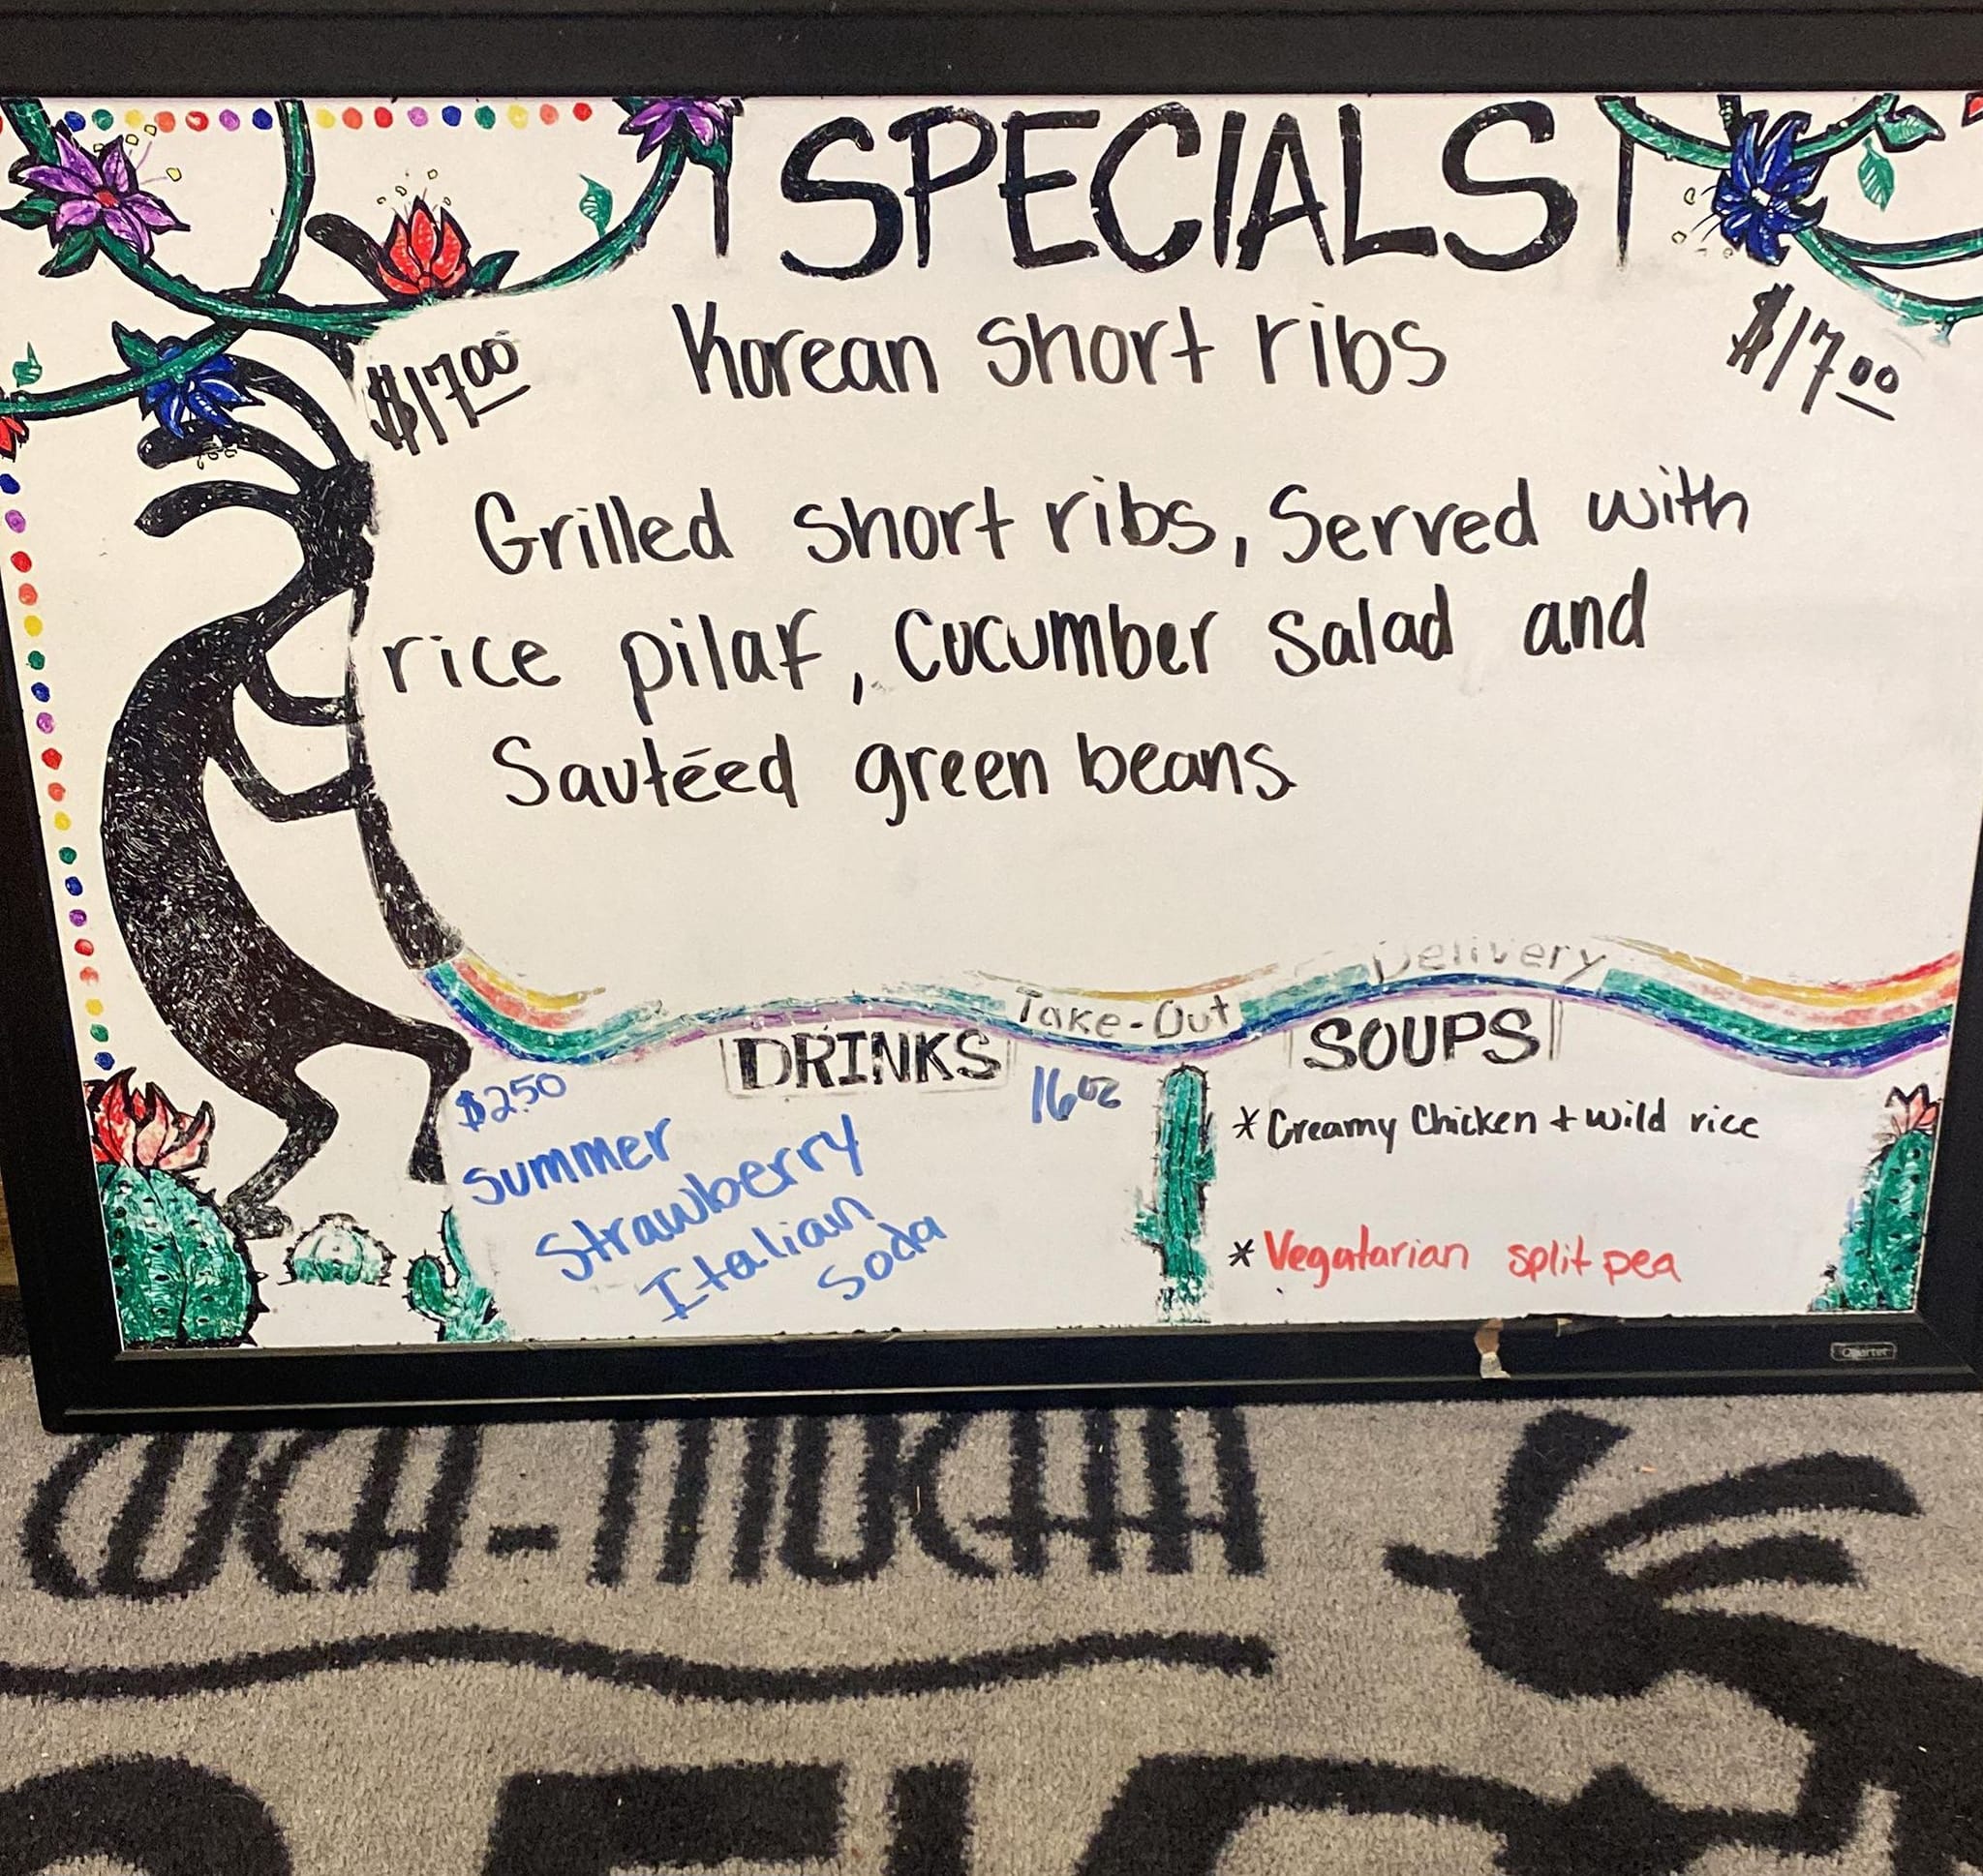 SPECIALS
$17.00
Korean short ribs
$17.00
Grilled short ribs, Served with
rice pilaf, Cucumber Salad and
Sautéed green beans
Delivery
Take-Out
DRINKS
$2.50
16oz
Summer
Strawberry
Italian
Soda
SOUPS
*Creamy Chicken + wild rice
*Vegatarian split pea
Quartet